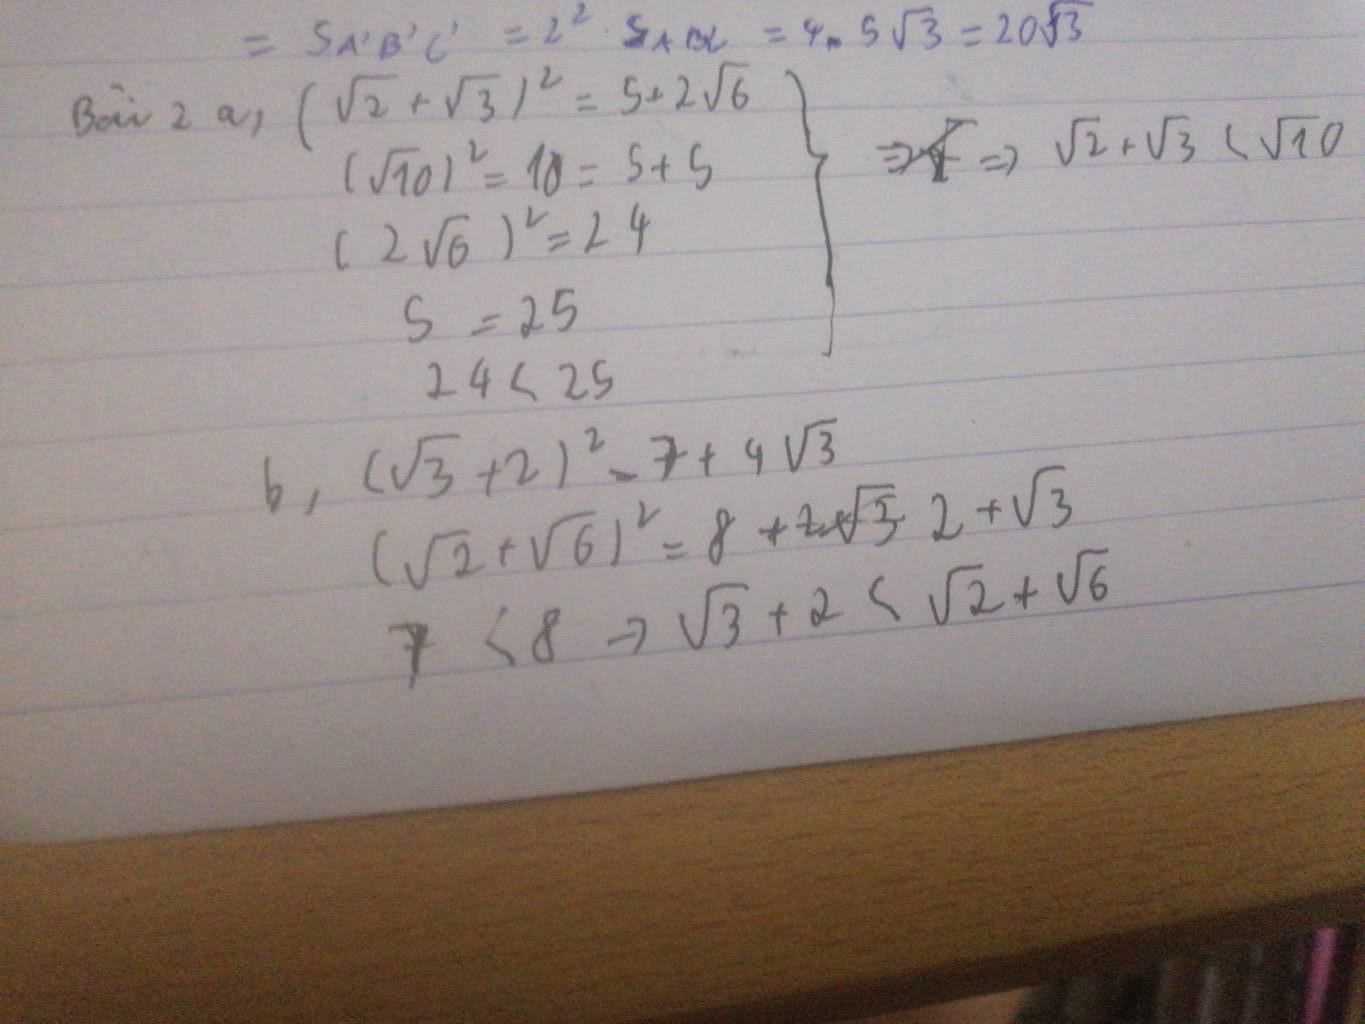 = SA'B'C' = 2² . SABC = 4. 5√3 = 20√3
Bài 2 a, (√2 + √3)² = 5+2√6
(√10)² = 10 = 5+5
⇒ √2+√3 < √10
(2√6)² = 24
5 = 25
24 < 25
b, (√3 +2)² - 7+ 4√3
(√2+√6)² = 8 + 2 + √3
7 < 8 → √3 + 2 < √2 + √6